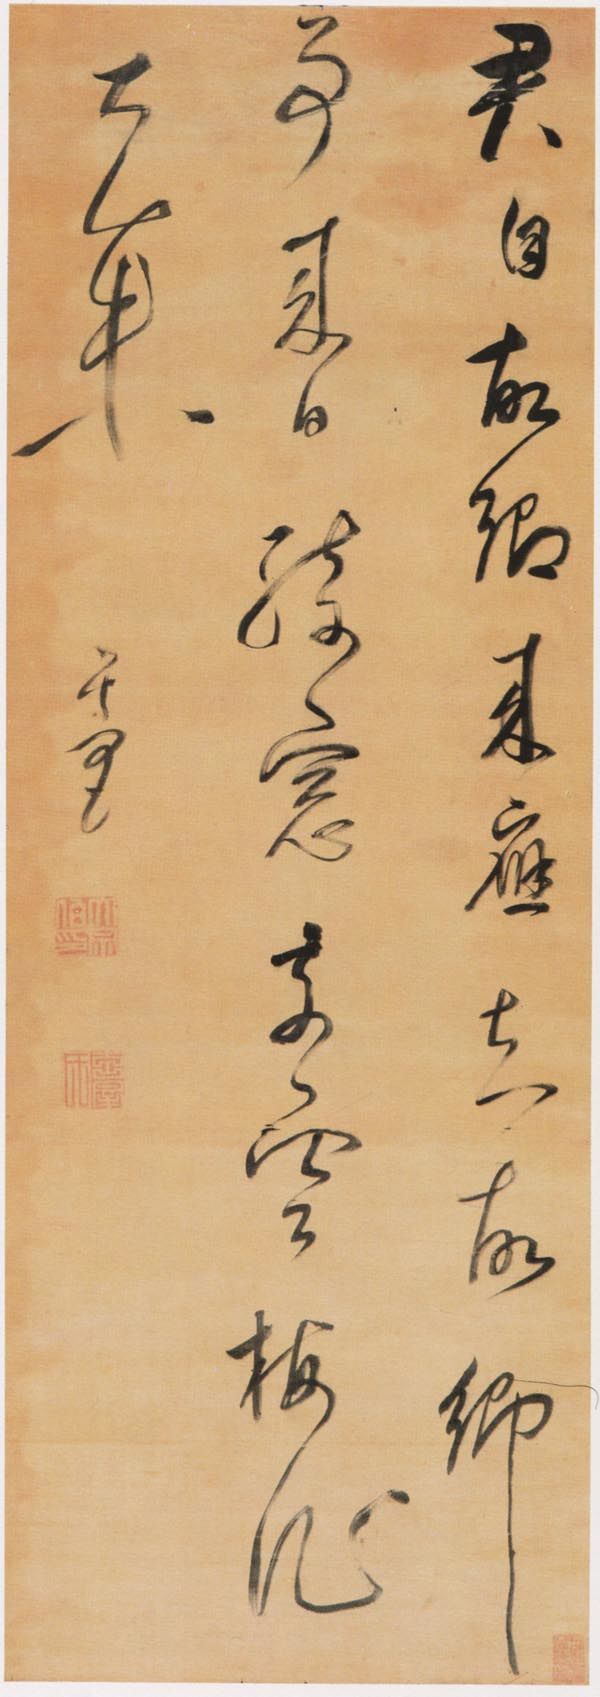 君自故鄉來應知故鄉
事來日綺窓前寒梅
花未
其昌